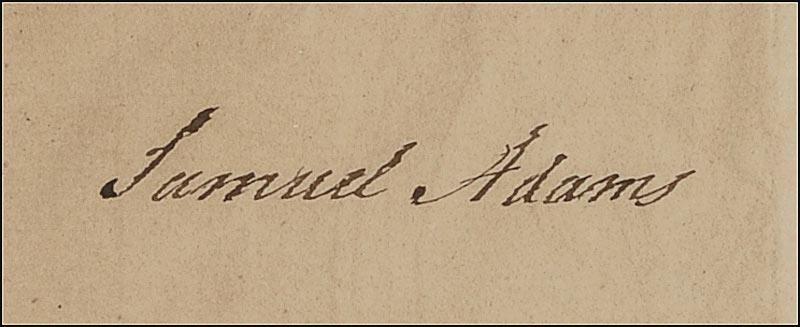 Samuel Adams